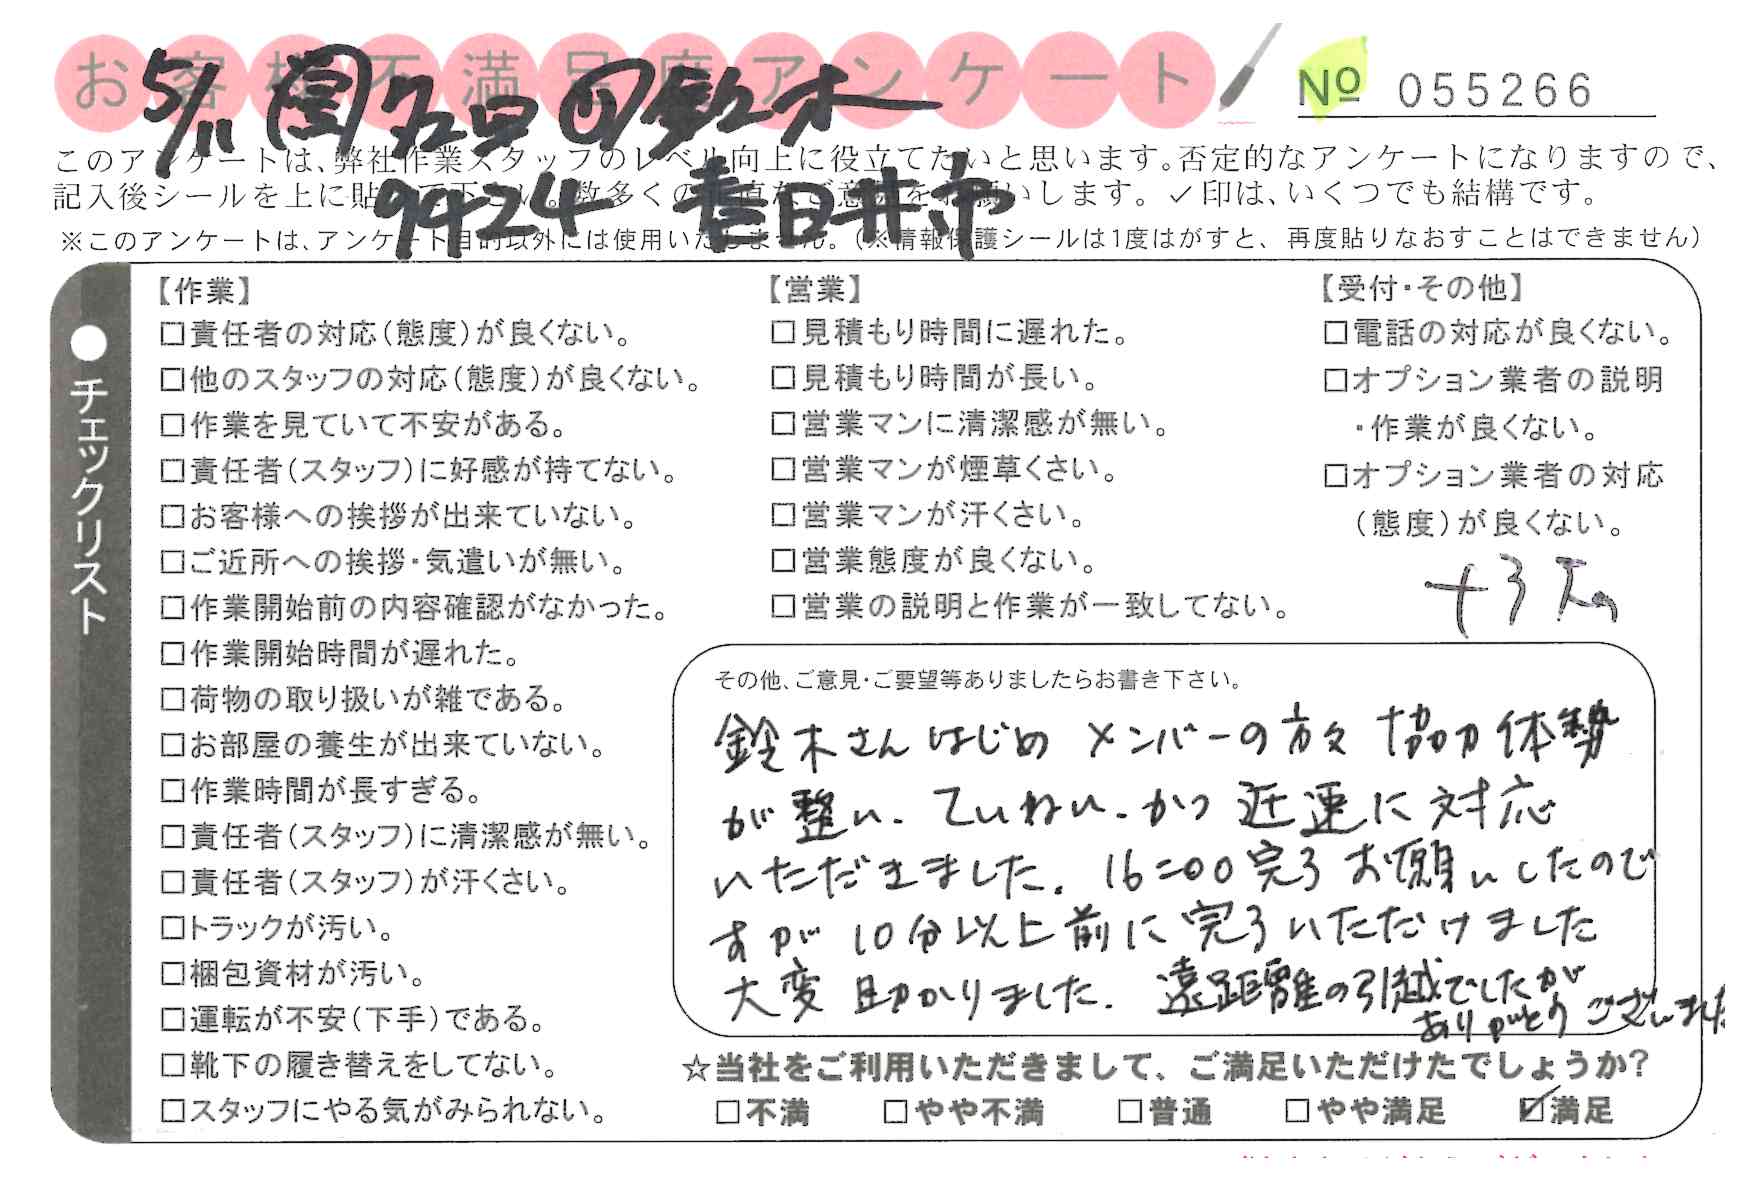 お客様不満足度アンケート
№ 055266
5/11 鈴木
9424 春日井市
このアンケートは、弊社作業スタッフのレベル向上に役立てたいと思います。否定的なアンケートになりますので、
記入後シールを上に貼って下さい。数多くの正直なご意見をお願いします。✓印は、いくつでも結構です。
※このアンケートは、アンケート目的以外には使用いたしません。(※情報保護シールは1度はがすと、再度貼りなおすことはできません)
●チェックリスト
【作業】
□責任者の対応(態度)が良くない。
□他のスタッフの対応(態度)が良くない。
□作業を見ていて不安がある。
□責任者(スタッフ)に好感が持てない。
□お客様への挨拶が出来ていない。
□ご近所への挨拶・気遣いが無い。
□作業開始前の内容確認がなかった。
□作業開始時間が遅れた。
□荷物の取り扱いが雑である。
□お部屋の養生が出来ていない。
□作業時間が長すぎる。
□責任者(スタッフ)に清潔感が無い。
□責任者(スタッフ)が汗くさい。
□トラックが汚い。
□梱包資材が汚い。
□運転が不安(下手)である。
□靴下の履き替えをしてない。
□スタッフにやる気がみられない。
【営業】
□見積もり時間に遅れた。
□見積もり時間が長い。
□営業マンに清潔感が無い。
□営業マンが煙草くさい。
□営業マンが汗くさい。
□営業態度が良くない。
□営業の説明と作業が一致してない。
【受付・その他】
□電話の対応が良くない。
□オプション業者の説明
・作業が良くない。
□オプション業者の対応
(態度)が良くない。
その他、ご意見・ご要望等ありましたらお書き下さい。
鈴木さんはじめ メンバーの方々 協力体勢
が整い、ていねい、かつ 迅速に対応
いただきました。16:00完了お願いしたので
すが 10分以上前に完了いただけました
大変 助かりました。遠距離の引越でしたが
ありがとうございました
☆当社をご利用いただきまして、ご満足いただけたでしょうか?
□不満 □やや不満 □普通 □やや満足 ☑満足